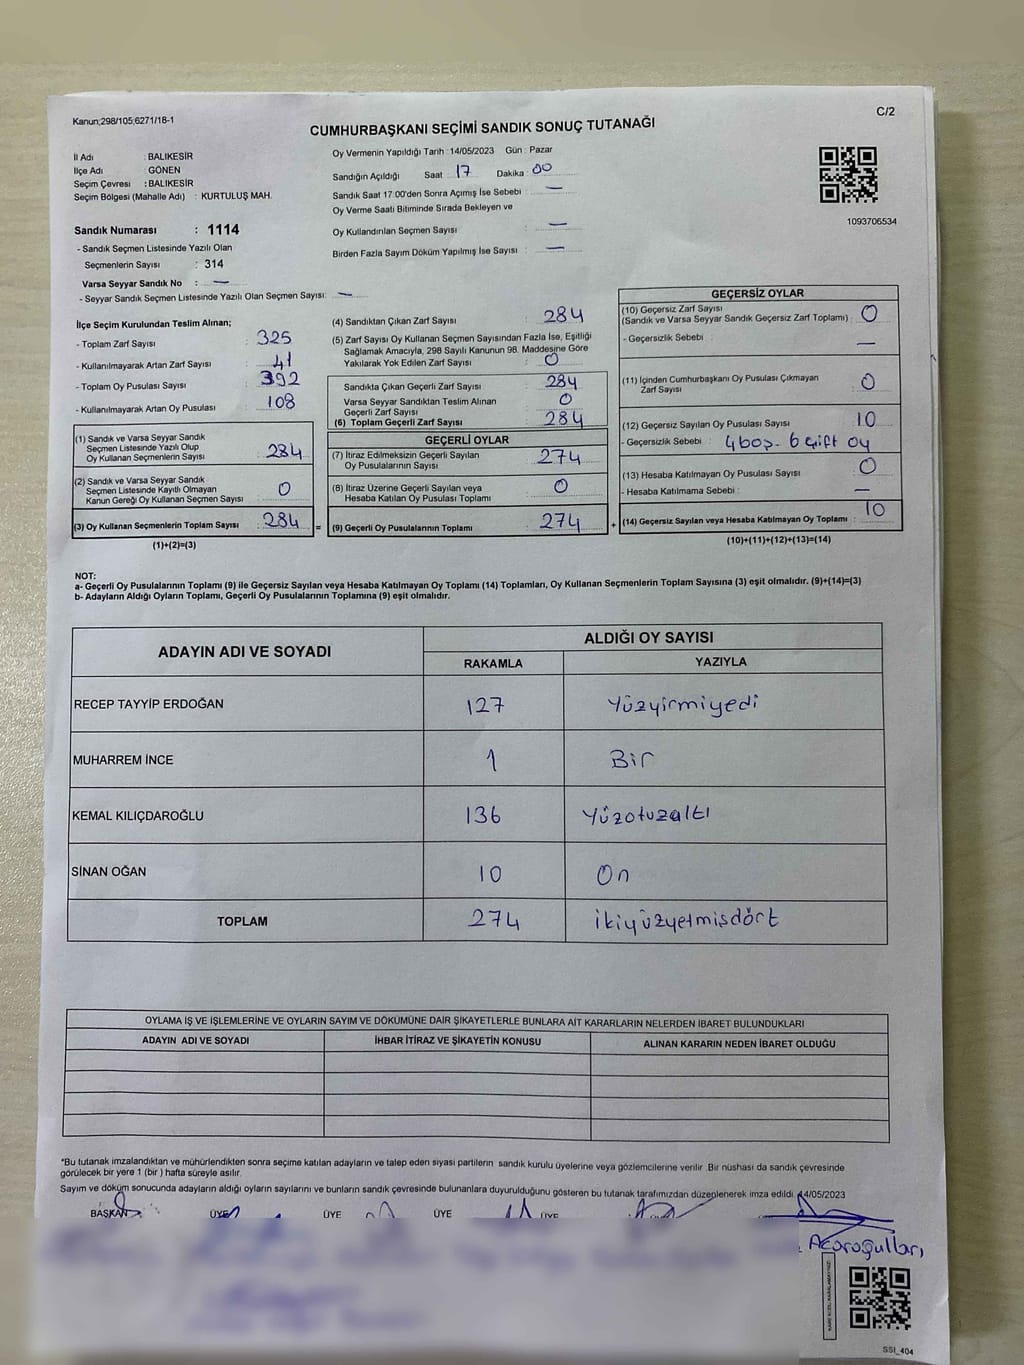 Kanun;298/105;6271/18-1
C/2
CUMHURBAŞKANI SEÇİMİ SANDIK SONUÇ TUTANAĞI
İl Adı : BALIKESİR
İlçe Adı : GÖNEN
Seçim Çevresi : BALIKESİR
Seçim Bölgesi (Mahalle Adı) : KURTULUŞ MAH.
Sandık Numarası : 1114
- Sandık Seçmen Listesinde Yazılı Olan
Seçmenlerin Sayısı : 314
Varsa Seyyar Sandık No : —
- Seyyar Sandık Seçmen Listesinde Yazılı Olan Seçmen Sayısı: —
Oy Vermenin Yapıldığı Tarih : 14/05/2023 Gün : Pazar
Sandığın Açıldığı Saat 17 Dakika : 00
Sandık Saat 17.00'den Sonra Açımış İse Sebebi : —
Oy Verme Saati Bitiminde Sırada Bekleyen ve
Oy Kullandırılan Seçmen Sayısı : —
Birden Fazla Sayım Döküm Yapılmış İse Sayısı : —
1093706534
İlçe Seçim Kurulundan Teslim Alınan;
- Toplam Zarf Sayısı : 325
- Kullanılmayarak Artan Zarf Sayısı : 41
- Toplam Oy Pusulası Sayısı : 392
- Kullanılmayarak Artan Oy Pusulası : 108
(1) Sandık ve Varsa Seyyar Sandık
Seçmen Listesinde Yazılı Olup
Oy Kullanan Seçmenlerin Sayısı : 284
(2) Sandık ve Varsa Seyyar Sandık
Seçmen Listesinde Kayıtlı Olmayan
Kanun Gereği Oy Kullanan Seçmen Sayısı : 0
(3) Oy Kullanan Seçmenlerin Toplam Sayısı : 284 =
(1)+(2)=(3)
(4) Sandıktan Çıkan Zarf Sayısı : 284
(5) Zarf Sayısı Oy Kullanan Seçmen Sayısından Fazla İse, Eşitliği
Sağlamak Amacıyla, 298 Sayılı Kanunun 98. Maddesine Göre
Yakılarak Yok Edilen Zarf Sayısı : 0
Sandıkta Çıkan Geçerli Zarf Sayısı : 284
Varsa Seyyar Sandıktan Teslim Alınan
Geçerli Zarf Sayısı : 0
(6) Toplam Geçerli Zarf Sayısı : 284
GEÇERLİ OYLAR
(7) İtiraz Edilmeksizin Geçerli Sayılan
Oy Pusulalarının Sayısı : 274
(8) İtiraz Üzerine Geçerli Sayılan veya
Hesaba Katılan Oy Pusulası Toplamı : 0
(9) Geçerli Oy Pusulalarının Toplamı : 274 +
GEÇERSİZ OYLAR
(10) Geçersiz Zarf Sayısı
(Sandık ve Varsa Seyyar Sandık Geçersiz Zarf Toplamı) : 0
- Geçersizlik Sebebi : —
(11) İçinden Cumhurbaşkanı Oy Pusulası Çıkmayan
Zarf Sayısı : 0
(12) Geçersiz Sayılan Oy Pusulası Sayısı : 10
- Geçersizlik Sebebi : 4 boş - 6 çift oy
(13) Hesaba Katılmayan Oy Pusulası Sayısı : 0
- Hesaba Katılmama Sebebi : —
(14) Geçersiz Sayılan veya Hesaba Katılmayan Oy Toplamı : 10
(10)+(11)+(12)+(13)=(14)
NOT:
a- Geçerli Oy Pusulalarının Toplamı (9) ile Geçersiz Sayılan veya Hesaba Katılmayan Oy Toplamı (14) Toplamları, Oy Kullanan Seçmenlerin Toplam Sayısına (3) eşit olmalıdır. (9)+(14)=(3)
b- Adayların Aldığı Oyların Toplamı, Geçerli Oy Pusulalarının Toplamına (9) eşit olmalıdır.
ADAYIN ADI VE SOYADI ALDIĞI OY SAYISI
RAKAMLA YAZIYLA
RECEP TAYYİP ERDOĞAN 127 Yüzyirmiyedi
MUHARREM İNCE 1 Bir
KEMAL KILIÇDAROĞLU 136 Yüzotuzaltı
SİNAN OĞAN 10 On
TOPLAM 274 ikiyüzyetmişdört
OYLAMA İŞ VE İŞLEMLERİNE VE OYLARIN SAYIM VE DÖKÜMÜNE DAİR ŞİKAYETLERLE BUNLARA AİT KARARLARIN NELERDEN İBARET BULUNDUKLARI
ADAYIN ADI VE SOYADI İHBAR İTİRAZ VE ŞİKAYETİN KONUSU ALINAN KARARIN NEDEN İBARET OLDUĞU
*Bu tutanak imzalandıktan ve mühürlendikten sonra seçime katılan adayların ve talep eden siyasi partilerin sandık kurulu üyelerine veya gözlemcilerine verilir .Bir nüshası da sandık çevresinde
görülecek bir yere 1 (bir ) hafta süreyle asılır.
Sayım ve döküm sonucunda adayların aldığı oyların sayılarını ve bunların sandık çevresinde bulunanlara duyurulduğunu gösteren bu tutanak tarafımızdan düzenlenerek imza edildi. 14/05/2023
BAŞKAN ÜYE ÜYE ÜYE ÜYE
Acaroğulları
SSI_404